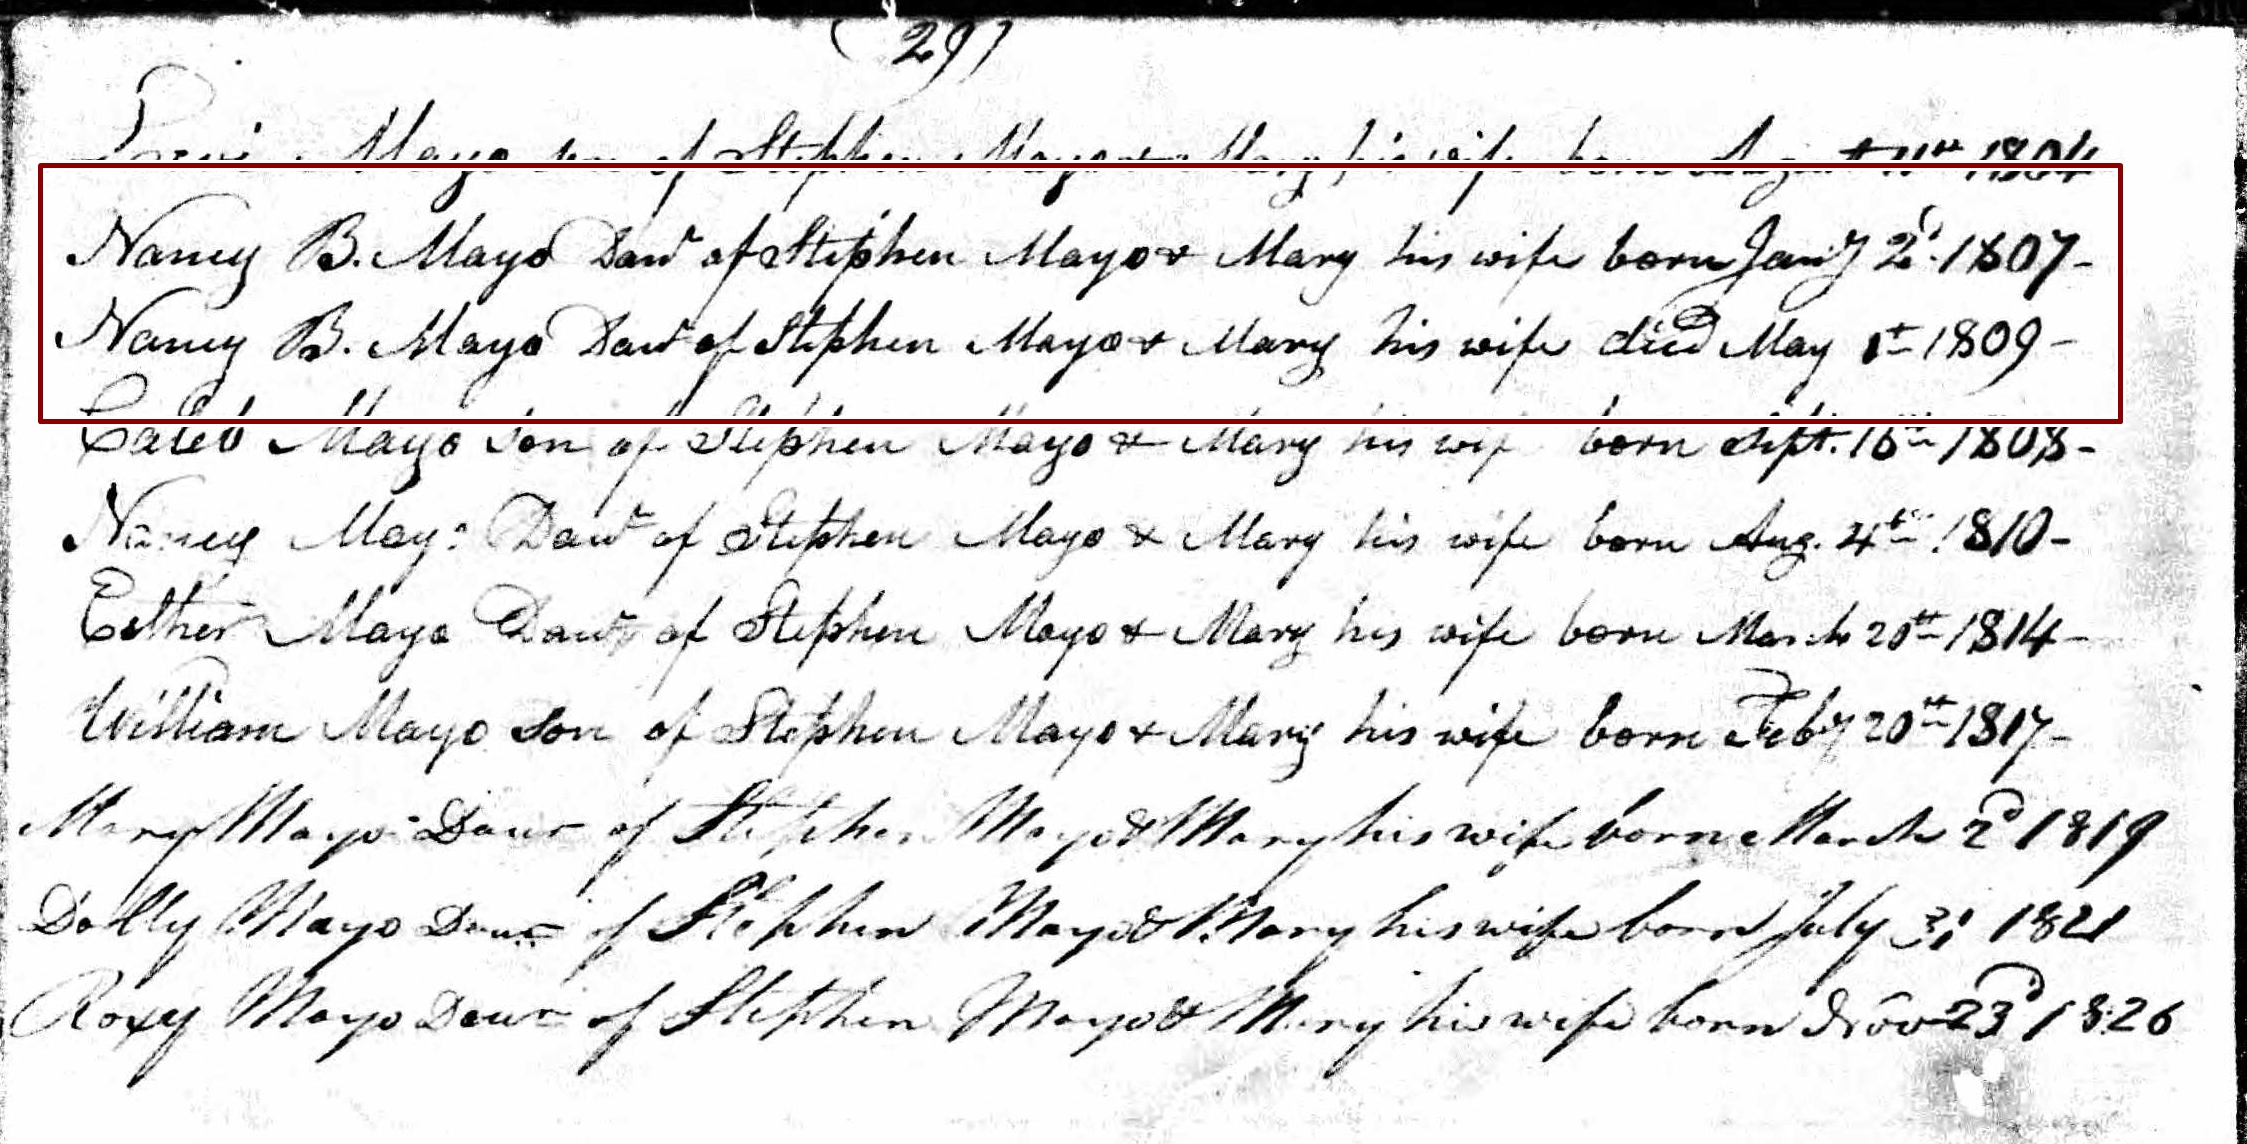 (29)
Mayo son of Stephen Mayo & Mary his wife born 1804
Nancy B. Mayo Daur of Stephen Mayo & Mary his wife born Jany 2d 1807-
Nancy B. Mayo Daur of Stephen Mayo & Mary his wife died May 1st 1809-
Caleb Mayo Son of Stephen Mayo & Mary his wif born Sept. 16th 1808-
Nancy Mayo Daur of Stephen Mayo & Mary his wife born Aug. 4th 1810-
Esther Mayo Daur of Stephen Mayo & Mary his wife born March 20th 1814-
William Mayo Son of Stephen Mayo & Mary his wife born Feby 20th 1817-
Mary Mayo Daur of Stephen Mayo & Mary his wife born March 2d 1819
Dolly Mayo Daur of Stephen Mayo & Mary his wife born July 31 1821
Roxy Mayo Daur of Stephen Mayo & Mary his wife born Nov 23d 1826